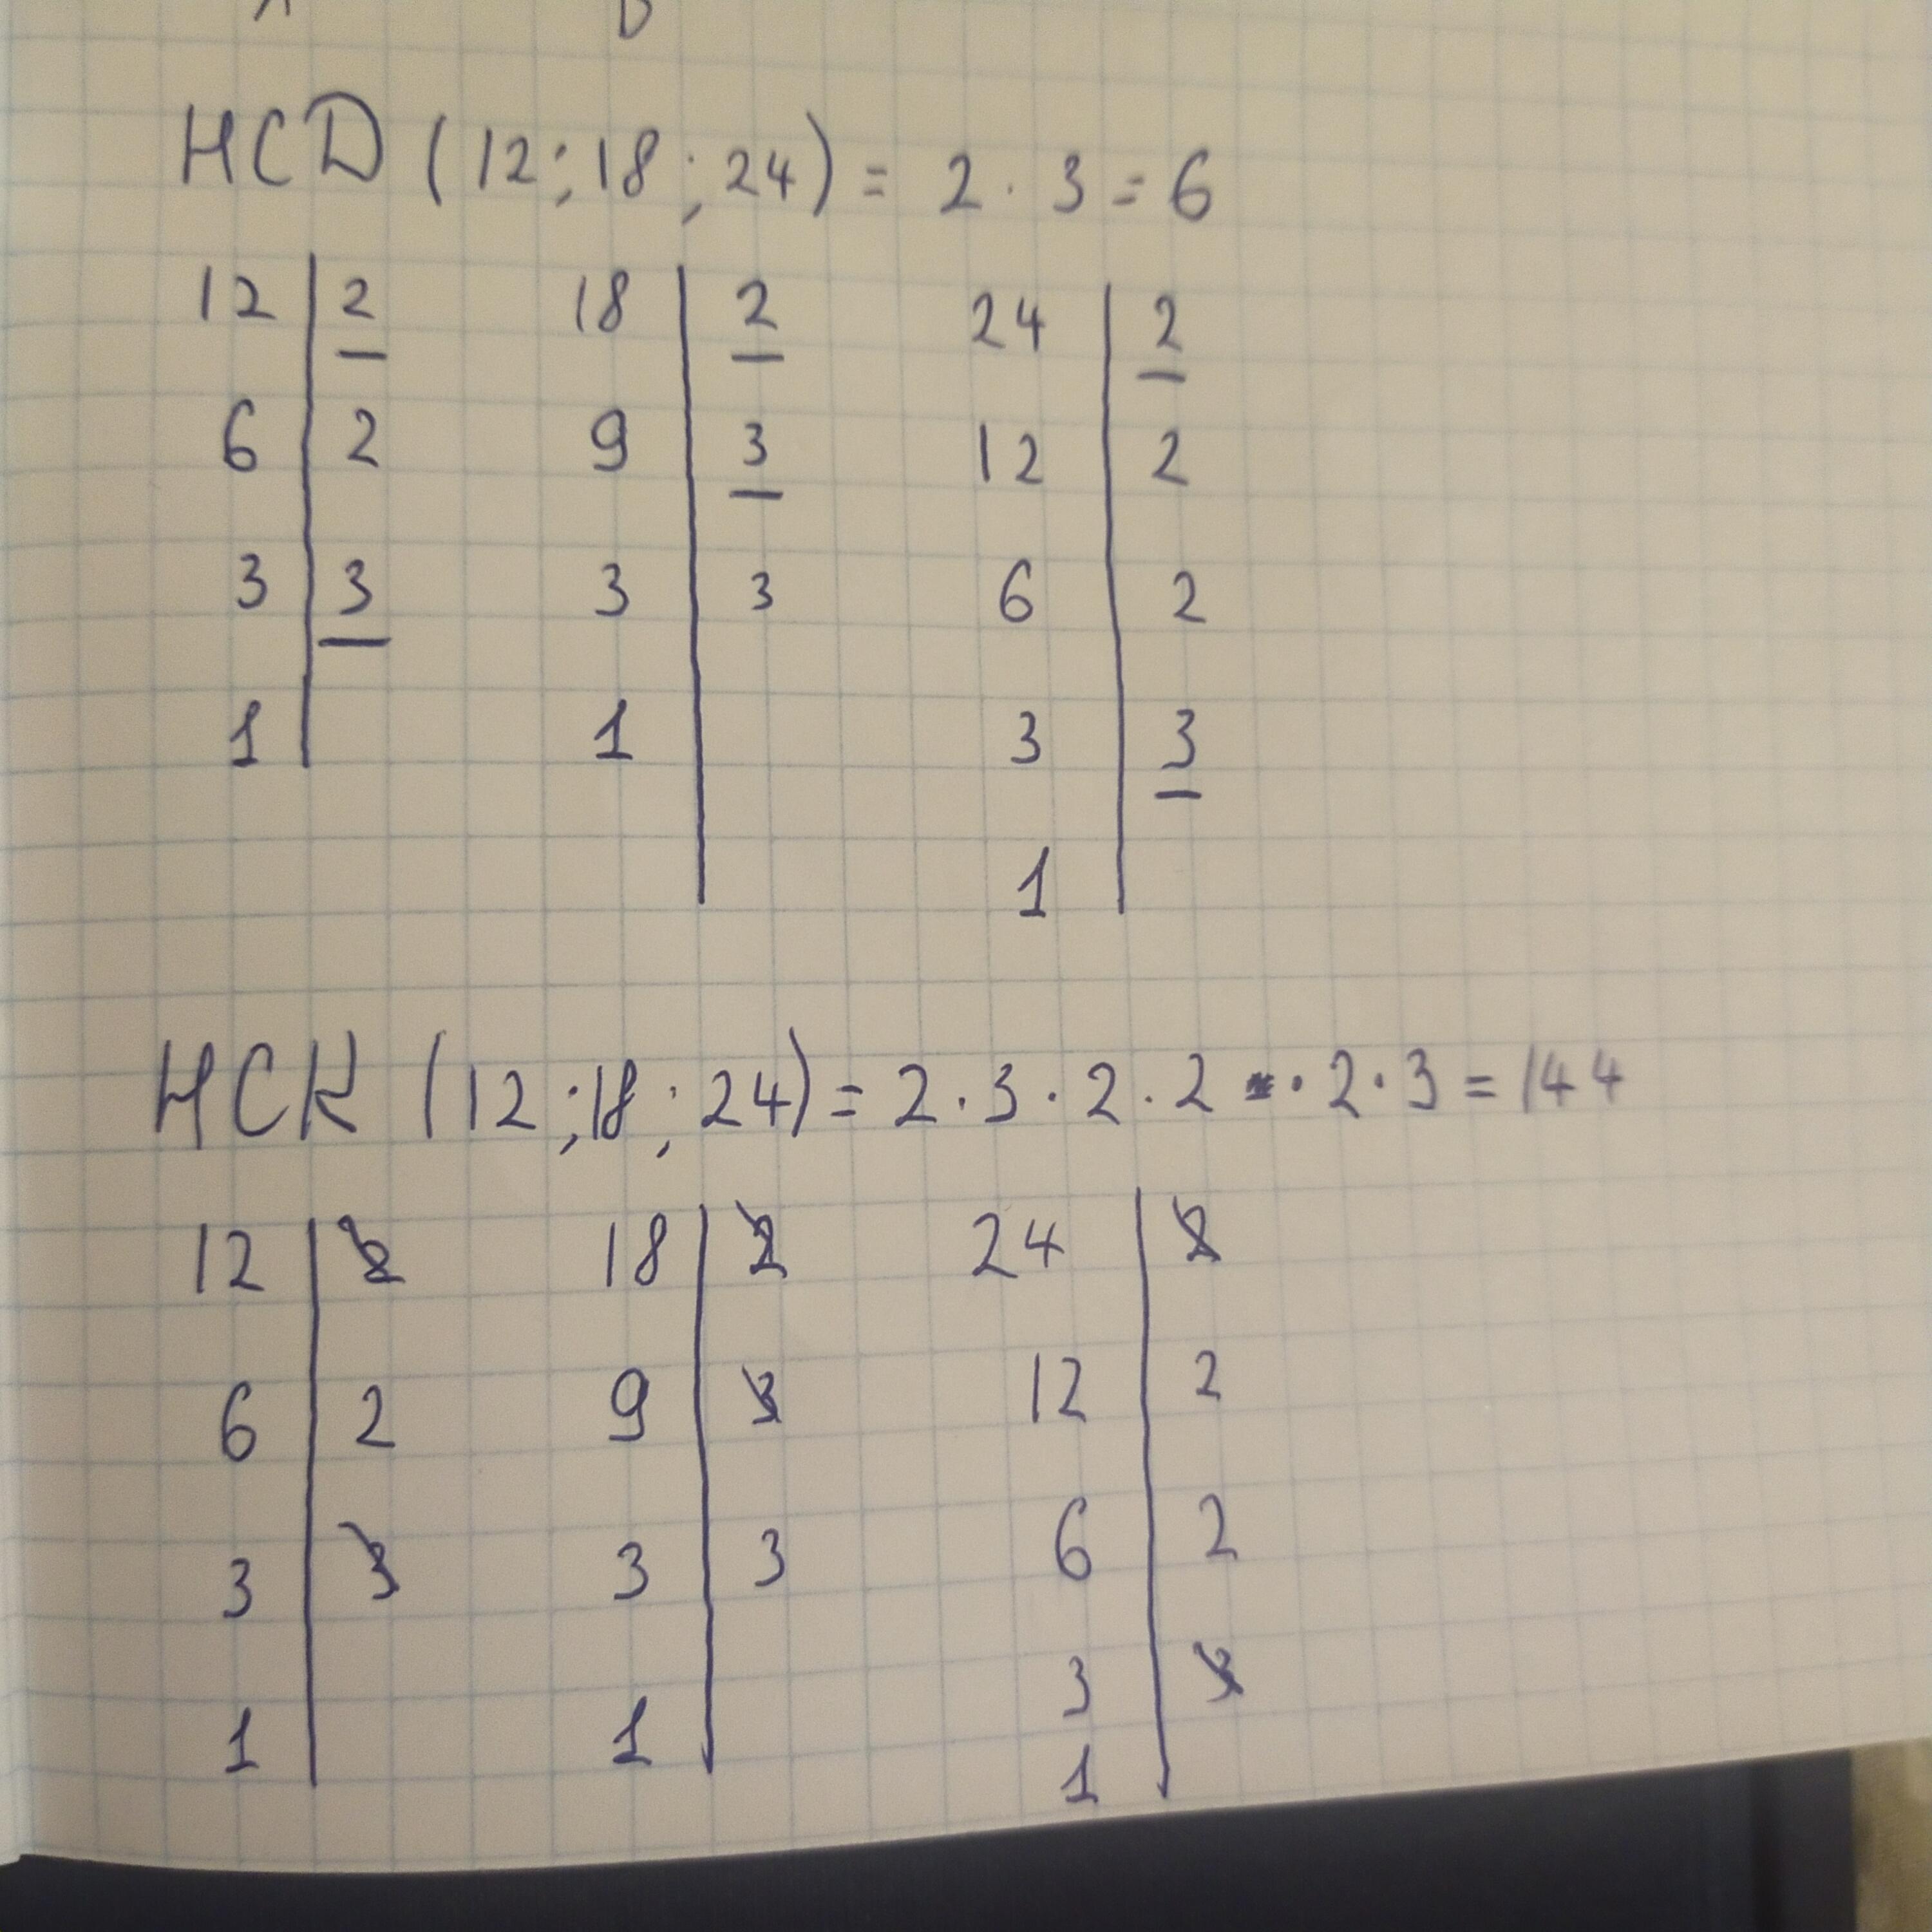 НСД (12; 18; 24) = 2 · 3 = 6
12 | 2 18 | 2 24 | 2
6 | 2 9 | 3 12 | 2
3 | 3 3 | 3 6 | 2
1 | 1 | 3 | 3
1 |
НСК (12; 18; 24) = 2 · 3 · 2 · 2 · 2 · 3 = 144
12 | 2 18 | 2 24 | 2
6 | 2 9 | 3 12 | 2
3 | 3 3 | 3 6 | 2
1 | 1 | 3 | 3
1 |